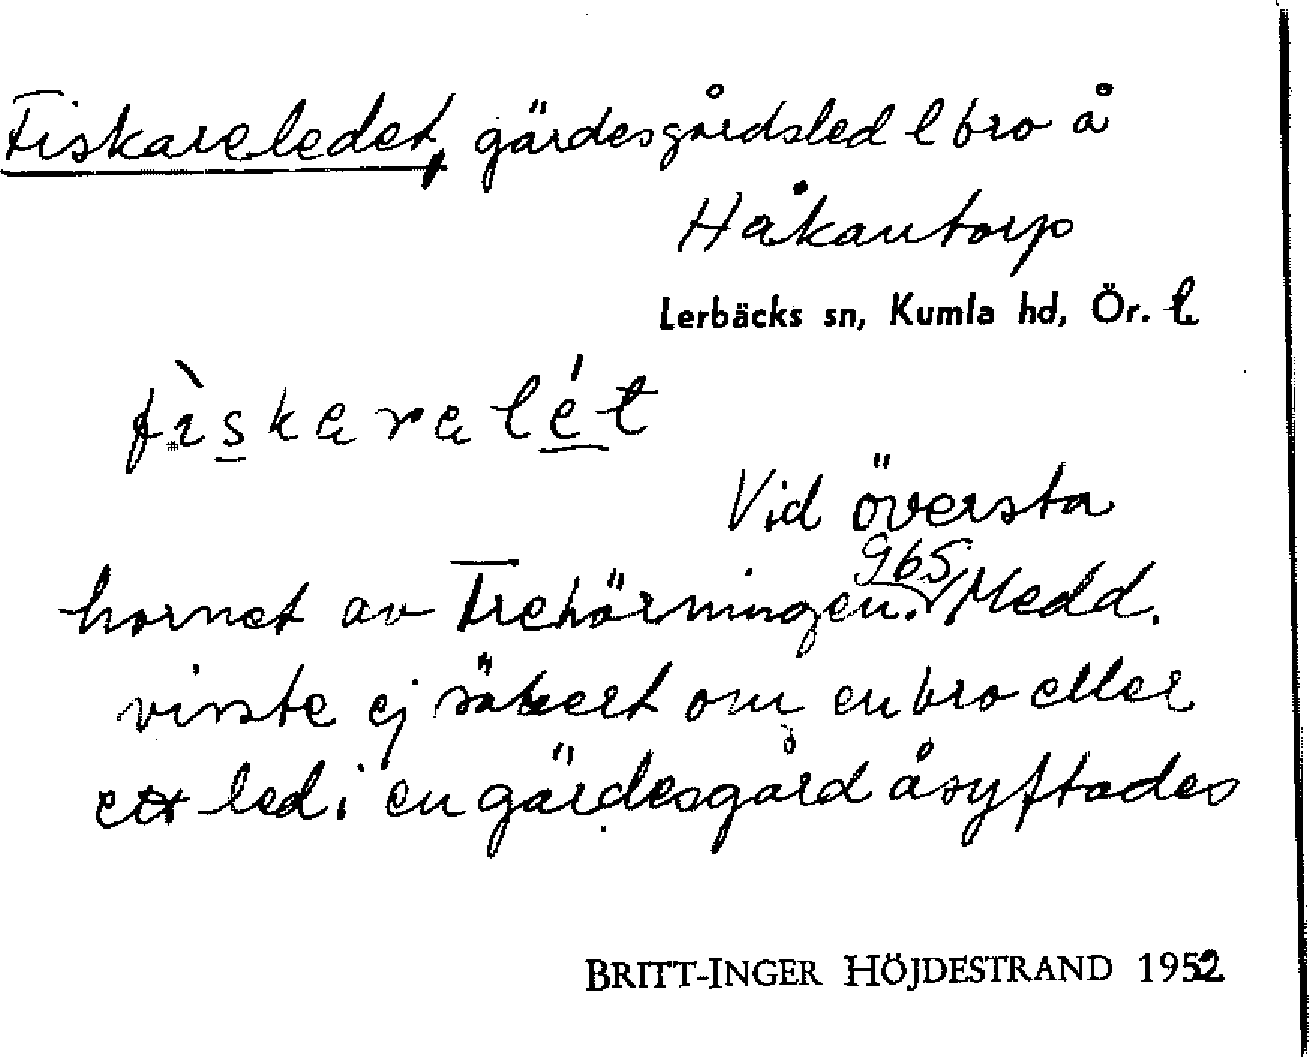 Fiskareledet, gärdesgårdsled l bro å
Håkantorp
Lerbäcks sn, Kumla hd, Ör. l
fiskarelét
Vid översta
965
hornet av Trehörningen. Medd.
visste ej säkert om en bro eller
ett led i en gärdesgård åsyftades
BRITT-INGER HÖJDESTRAND 1952